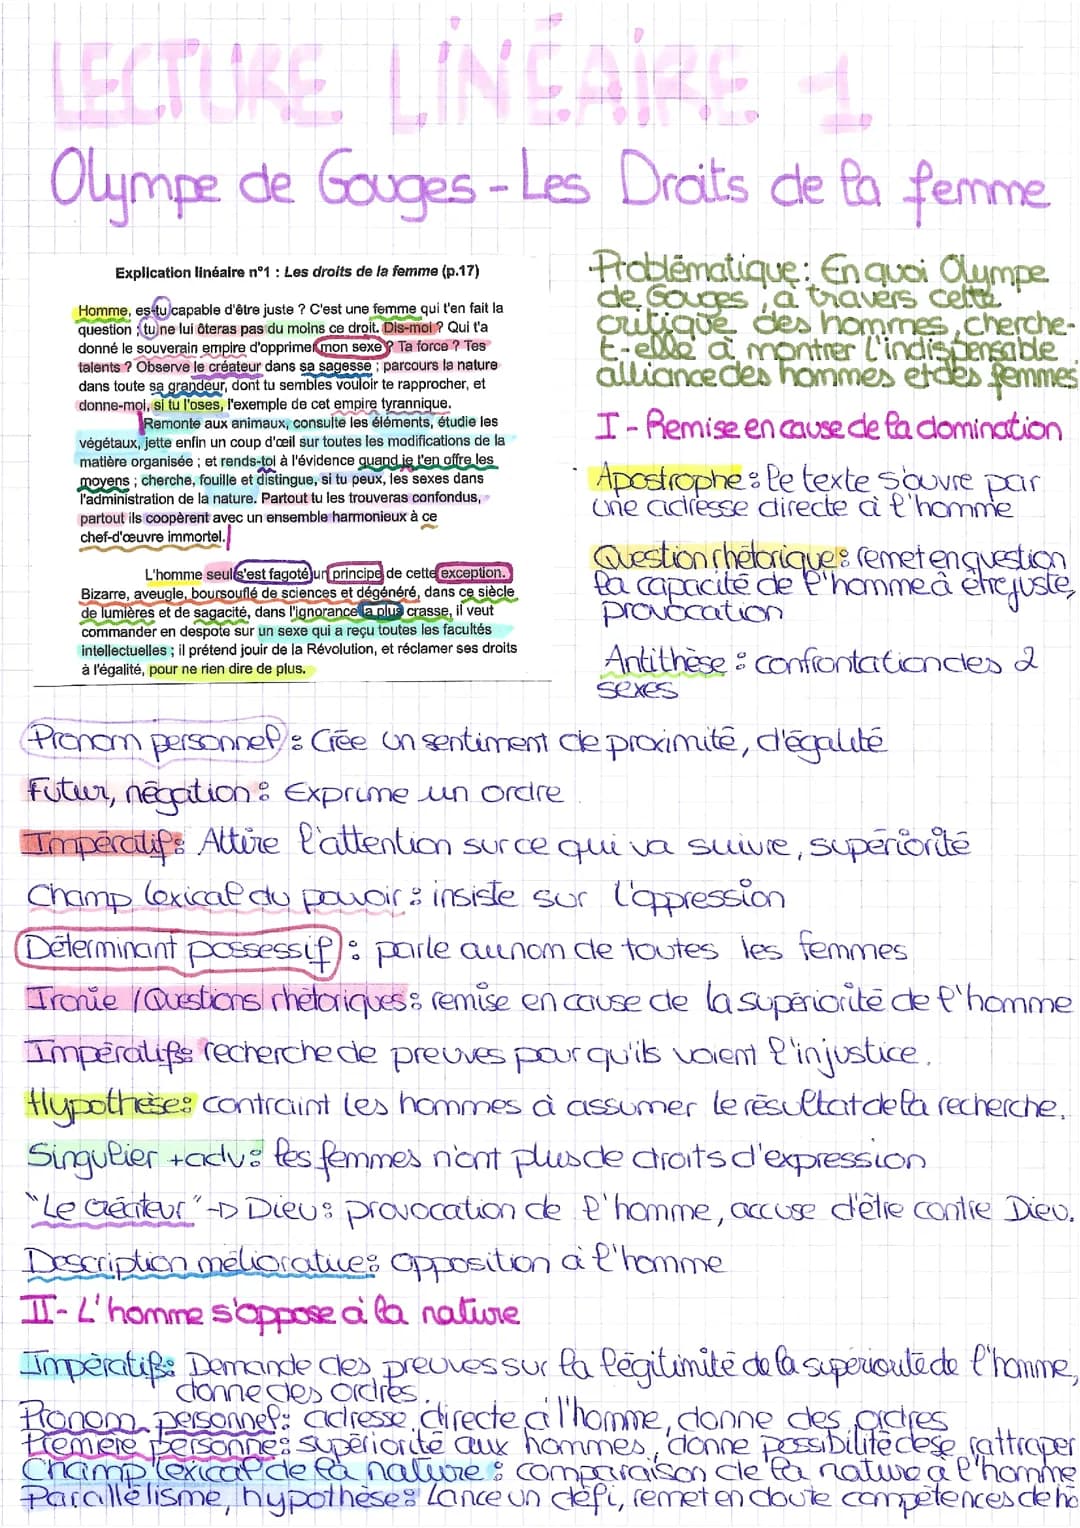 LECTURE LINÉAIRE 1
Olympe de Gouges - Les Droits de la femme
Explication linéaire n°1 : Les droits de la femme (p.17)
Homme, es-tu capable d'être juste ? C'est une femme qui t'en fait la
question ; tu ne lui ôteras pas du moins ce droit. Dis-moi ? Qui t'a
donné le souverain empire d'opprimer mon sexe ? Ta force ? Tes
talents ? Observe le créateur dans sa sagesse ; parcours la nature
dans toute sa grandeur, dont tu sembles vouloir te rapprocher, et
donne-moi, si tu l'oses, l'exemple de cet empire tyrannique.
Remonte aux animaux, consulte les éléments, étudie les
végétaux, jette enfin un coup d'œil sur toutes les modifications de la
matière organisée ; et rends-toi à l'évidence quand je t'en offre les
moyens ; cherche, fouille et distingue, si tu peux, les sexes dans
l'administration de la nature. Partout tu les trouveras confondus,
partout ils coopèrent avec un ensemble harmonieux à ce
chef-d'œuvre immortel.
L'homme seul s'est fagoté un principe de cette exception.
Bizarre, aveugle, boursouflé de sciences et dégénéré, dans ce siècle
de lumières et de sagacité, dans l'ignorance la plus crasse, il veut
commander en despote sur un sexe qui a reçu toutes les facultés
intellectuelles ; il prétend jouir de la Révolution, et réclamer ses droits
à l'égalité, pour ne rien dire de plus.
Problématique : En quoi Olympe
de Gouges, à travers cette
critique des hommes, cherche-
t-elle à montrer l'indispensable
alliance des hommes et des femmes
I - Remise en cause de la domination
Apostrophe : le texte s'ouvre par
une adresse directe à l'homme
Question rhétorique : remet en question
la capacité de l'homme à être juste,
provocation
Antithèse : confrontation des 2
sexes
Pronom personnel : Crée un sentiment de proximité, d'égalité
Futur, négation : Exprime un ordre
Impératif : Attire l'attention sur ce qui va suivre, supériorité
Champ lexical du pouvoir : insiste sur l'oppression
Déterminant possessif : parle au nom de toutes les femmes
Ironie / Questions rhétoriques : remise en cause de la supériorité de l'homme
Impératifs recherche de preuves pour qu'ils voient l'injustice.
Hypothèse : contraint les hommes à assumer le résultat de la recherche.
Singulier + adv : les femmes n'ont plus de droits d'expression
"Le créateur" -> Dieu : provocation de l'homme, accuse d'être contre Dieu.
Description méliorative : opposition à l'homme
II - L'homme s'oppose à la nature
Impératifs : Demande des preuves sur la légitimité de la supériorité de l'homme,
donne des ordres.
Pronom personnel : adresse directe à l'homme, donne des ordres
Première personne : supériorité aux hommes, donne possibilité de se rattraper
Champ lexical de la nature : comparaison de la nature à l'homme
Parallélisme, hypothèse : Lance un défi, remet en doute compétences de ho